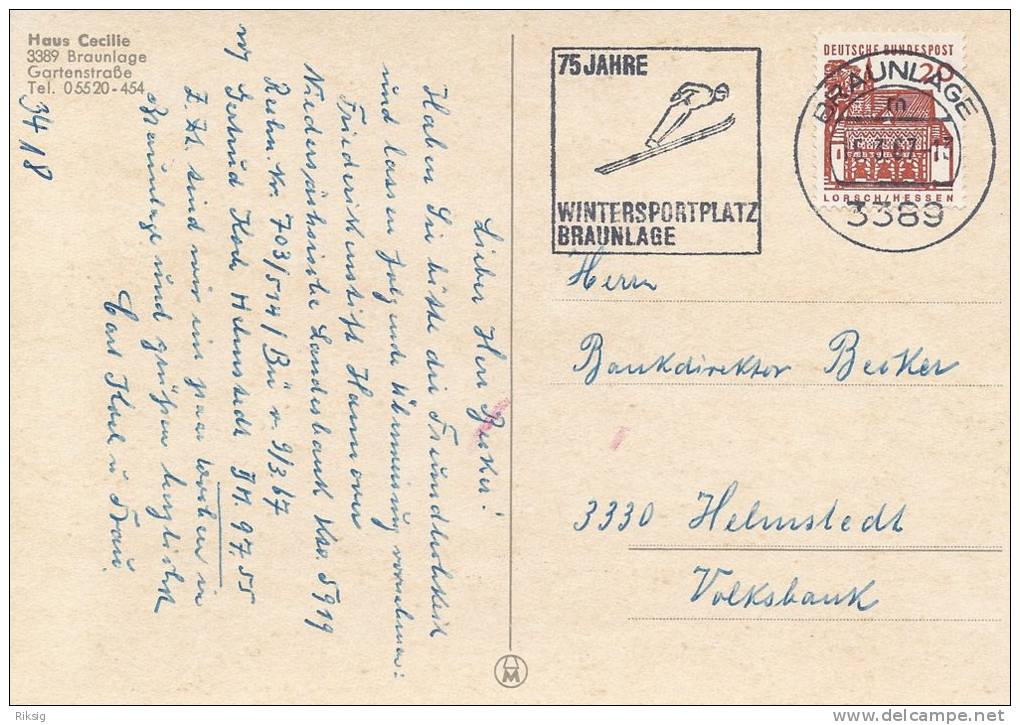 Haus Cecilie
3389 Braunlage
Gartenstraße
Tel. 05520-454
34/8
Lieber Herr Becker!
Haben Sie bitte die Freundlichkeit
und lassen folgende Überweisung vornehmen:
Friederikenstift Hannover
Niedersächsische Landesbank Kto. 5919
Rechn. Nr. 703/514/Bü v. 9/3.67
Gertrud Koch Helmstedt DM. 97.55
Z. Zt. sind wir ein paar Wochen in
Braunlage und grüßen herzlichst
Carl Koch u Frau
75 JAHRE
WINTERSPORTPLATZ
BRAUNLAGE
DEUTSCHE BUNDESPOST
20
LORSCH/HESSEN
BRAUNLAGE
m
3389
Herrn
Bankdirektor Becker
3330 Helmstedt
Volksbank
Riksig
www.delcampe.net